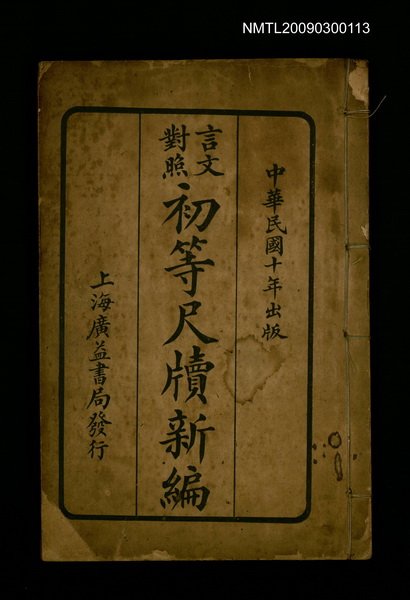 NMTL20090300113
中華民國十年出版
言文
對照
初等尺牘新編
上海廣益書局發行